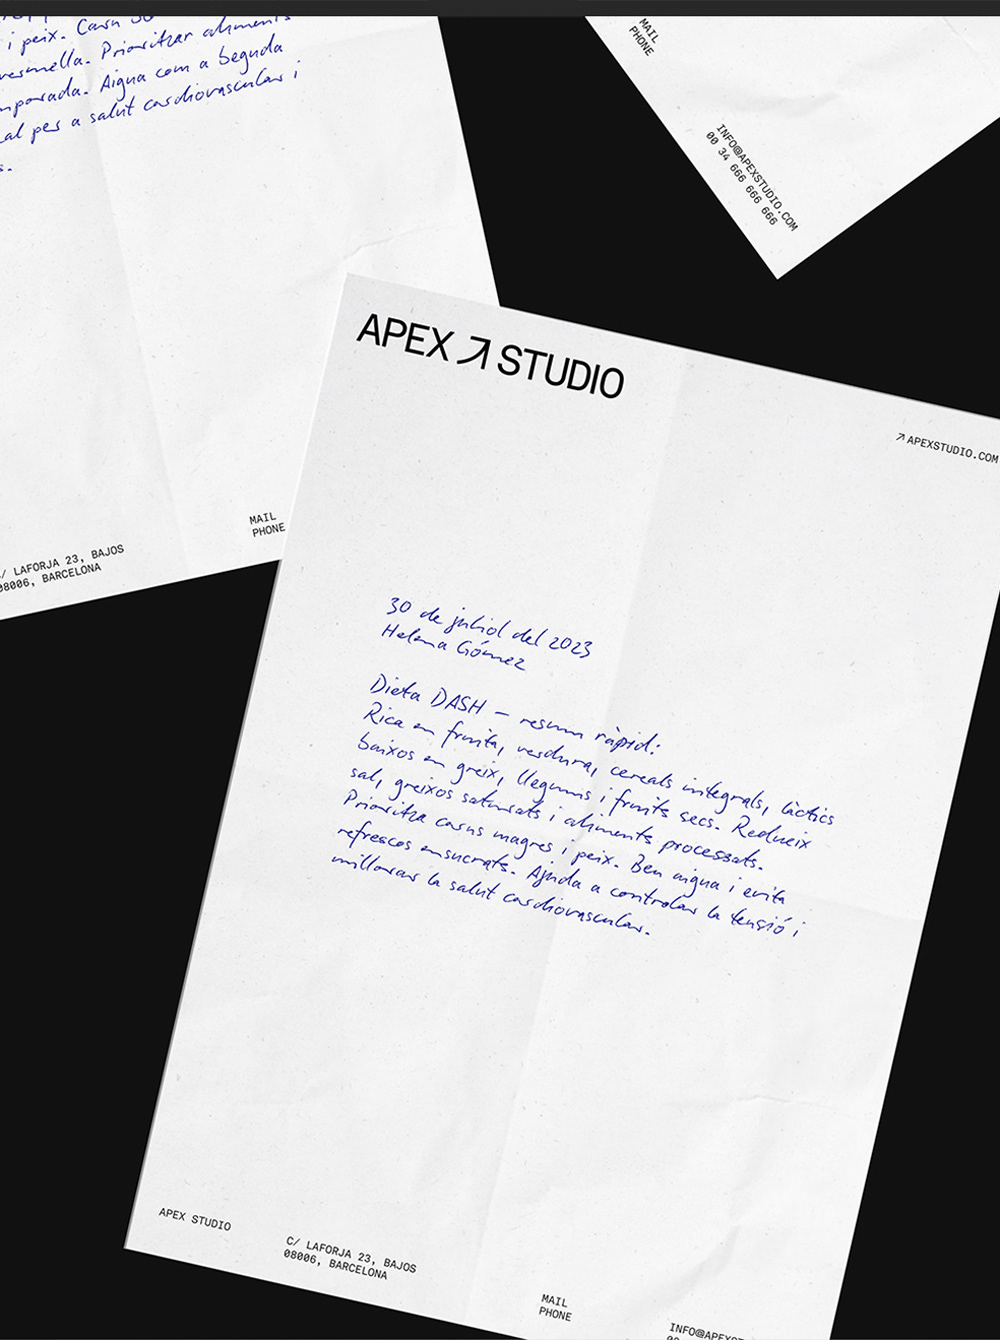 i peix. Carn
vermella. Prioritzar aliments
temporada. Aigua com a beguda
per a salut cardiovascular i
C/ LAFORJA 23, BAJOS
08006, BARCELONA
MAIL
PHONE
MAIL
PHONE
INFO@APEXSTUDIO.COM
00 34 666 666 666
APEX ↗ STUDIO
↗ APEXSTUDIO.COM
30 de juliol del 2023
Helena Gómez
Dieta DASH – resum ràpid:
Rica en fruita, verdura, cereals integrals, làctics
baixos en greix, llegums i fruits secs. Redueix
sal, greixos saturats i aliments processats.
Prioritza carns magres i peix. Beu aigua i evita
refrescos ensucrats. Ajuda a controlar la tensió i
millorar la salut cardiovascular.
APEX STUDIO
C/ LAFORJA 23, BAJOS
08006, BARCELONA
MAIL
PHONE